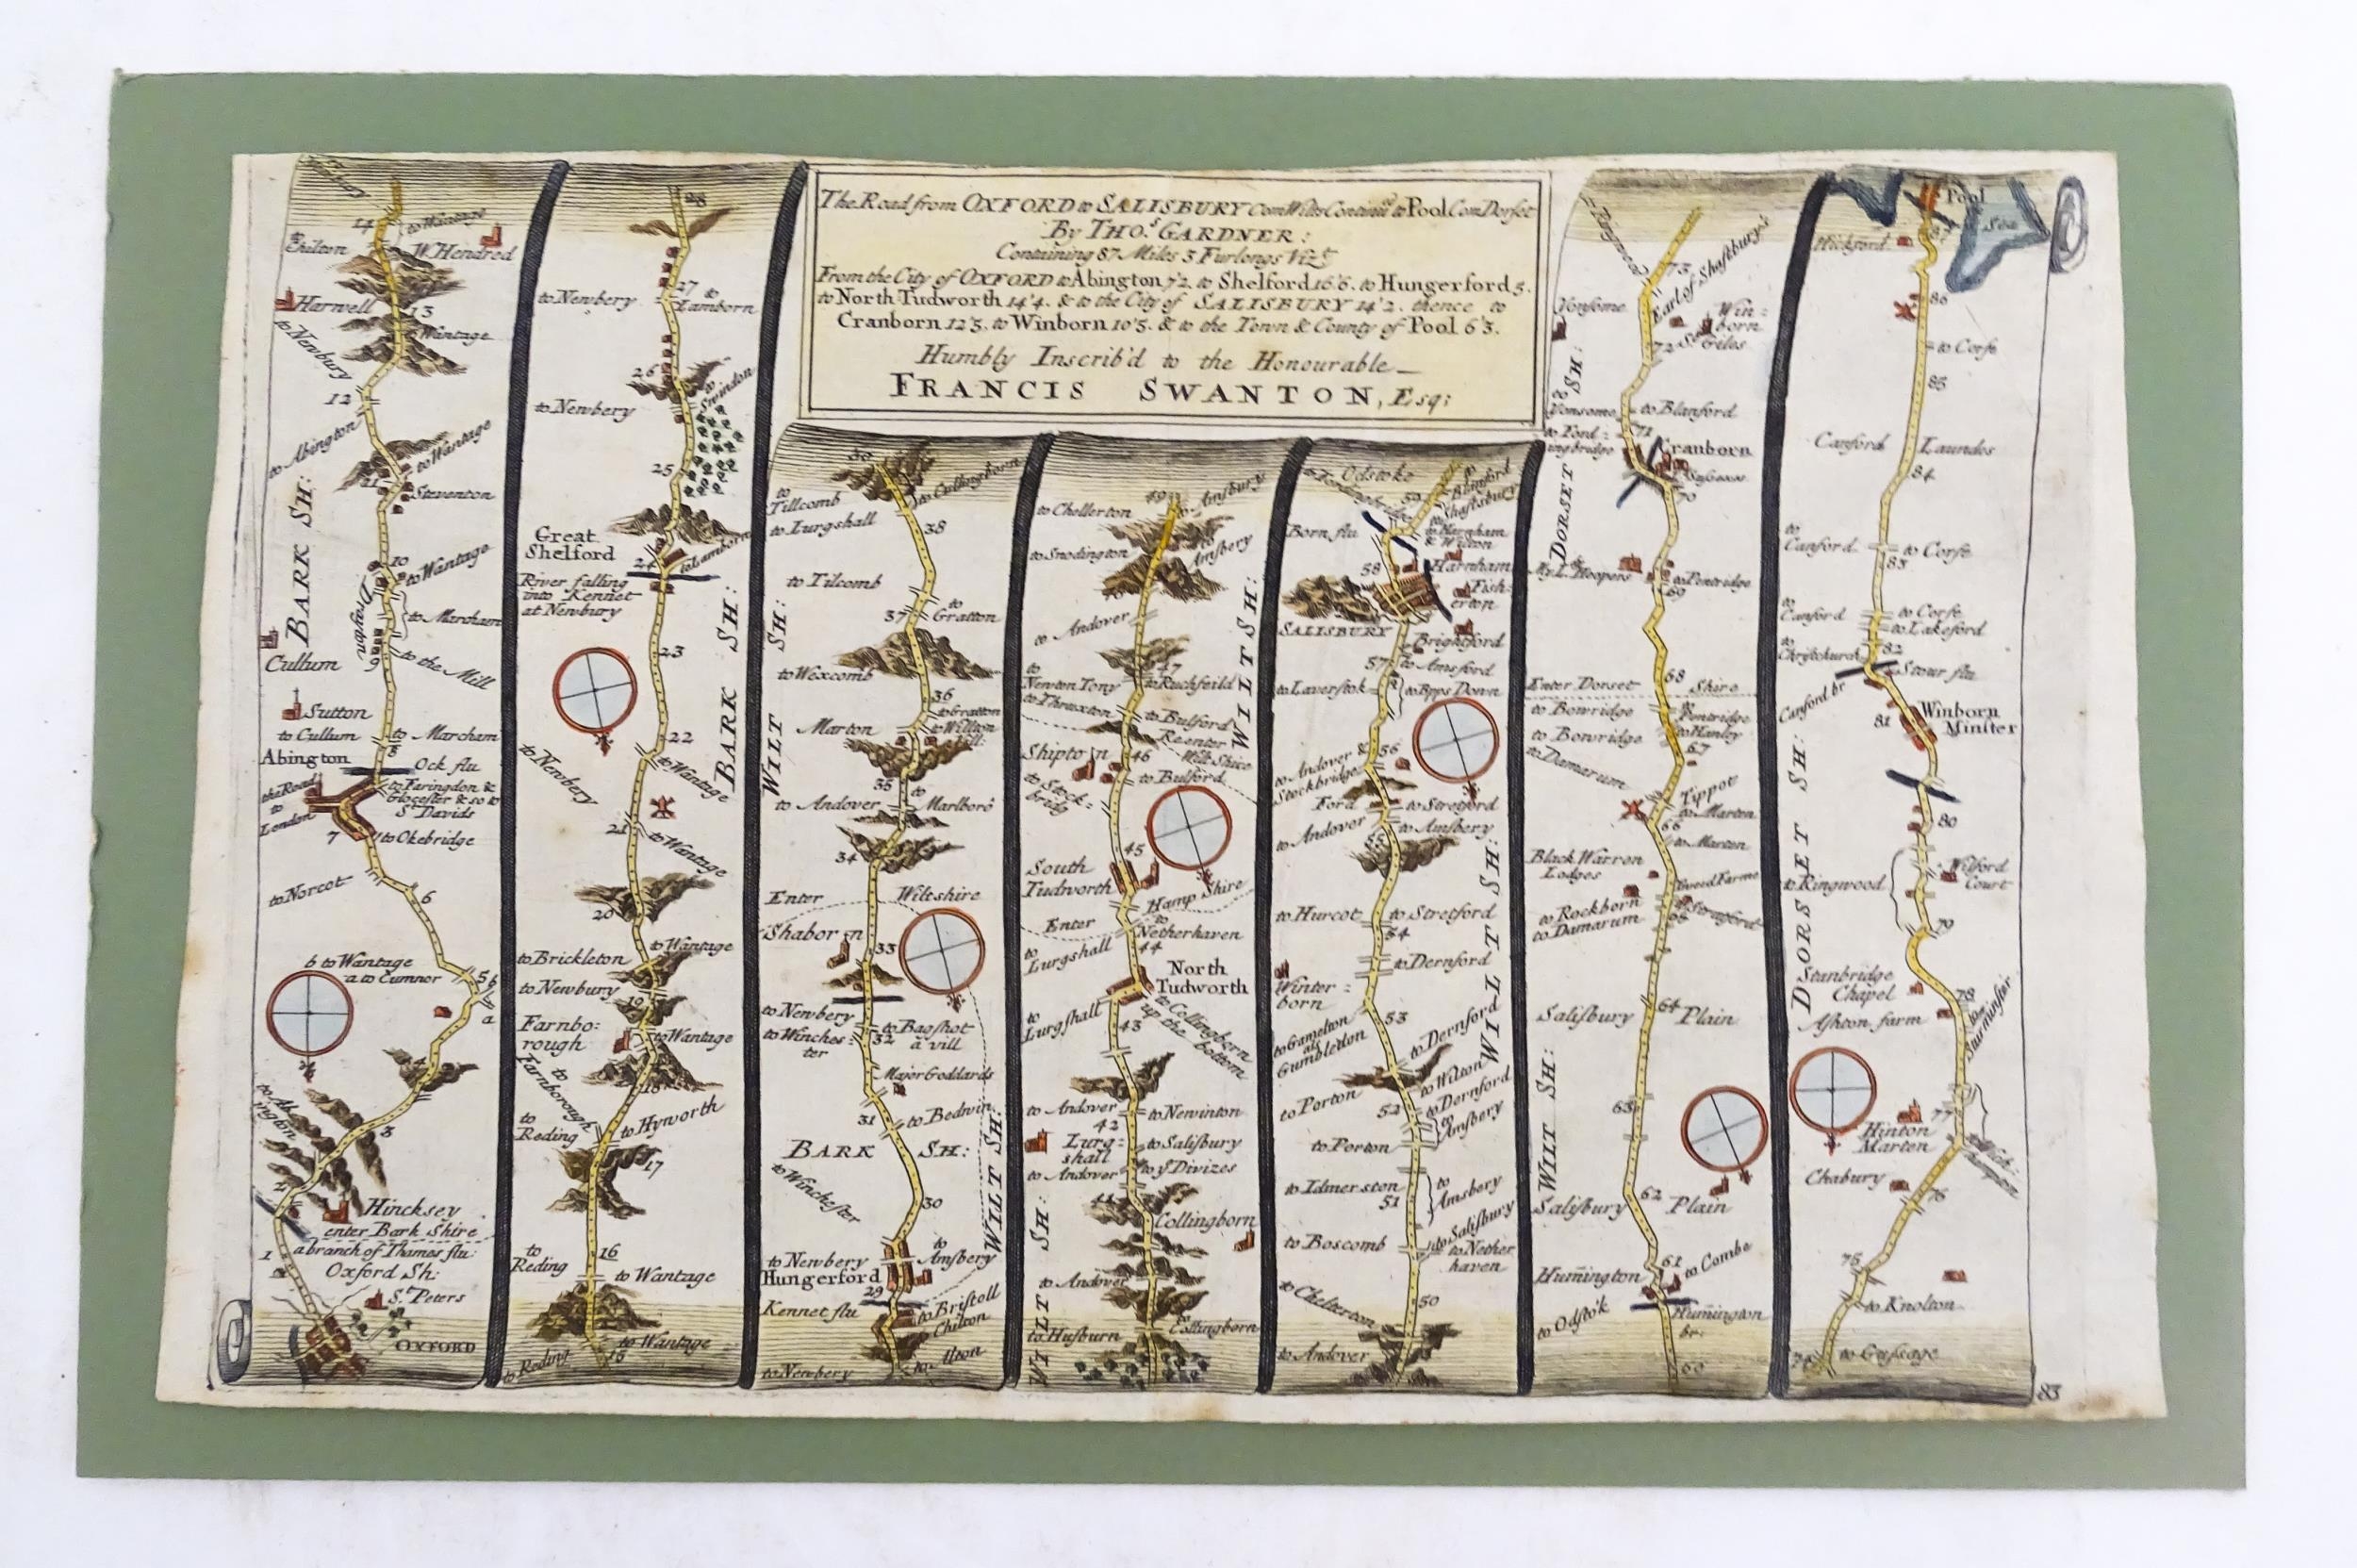 The Road from OXFORD to SALISBURY Com Wilts Continu'd to Pool Com Dorset
By THO.S GARDNER:
Containing 87 Miles 3 Furlongs Viz.t
From the City of OXFORD to Abington 7'2. to Shelford 16'6. to Hungerford 5.
to North Tudworth 14'4. & to the City of SALISBURY 14'2. thence to
Cranborn 12'3. to Winborn 10'5. & to the Town & County of Pool 6'3.
Humbly Inscrib'd to the Honourable
FRANCIS SWANTON, Esq:
14
to Wantage
Chilton
W. Hendred
Harwell
13
Wantage
to Newbury
12
to Abington
to Wantage
Steventon
BARK SH:
10
to Wantage
Drayton
to Marcham
Cullum
9
to the Mill
Sutton
to Cullum
to Marcham
8
Abington
Ock flu
the Road
to
London
to Faringdon &
Glocester & so to
St Davids
7
to Okebridge
to Norcot
6
b to Wantage
a to Cumnor
5
b
a
4
to Ab
ington
3
2
Hincksey
enter Bark Shire
a branch of Thames flu:
1
Oxford Sh:
St. Peters
OXFORD
28
27
to Newbery
to
Lamborn
26
to
Swindon
to Newbery
25
Great
Shelford
24
to Lamborn
River falling
into Kennet
at Newbury
BARK SH:
23
22
to Newbery
to Wantage
21
to Wantage
20
to Brickleton
to Wantage
to Newbury
19
Farnbo:
rough
to Wantage
to
Farnborough
18
to
Reding
to Hyworth
17
to
Reding
16
to Wantage
to Reding
to Wantage
15
to Cullingborn
to
Tillcomb
to Lurgshall
38
to Tilcomb
WILT SH:
37
to
Gratton
to Wexcomb
36
to Gratton
Marton
to Willton
35
to Andover
to
Marlboro
34
Enter Wiltshire
Shaborn
33
to Newbery
to Winches:
ter
to Bagshot
a vill
32
Major Goddards
31
to Bedwin
BARK SH:
to Winchester
30
WILT SH:
to Newbery
to
Amsbery
Hungerford
29
Kennet flu
to Bristoll
Chilton
to Newbery
to Alton
49
to Amsbury
to Chellerton
to Snodington
to
Amsbery
to Andover
WILTSH:
47
to
Newton Tony
to Ruchfeild
to Thruxton
to Bulford
Re enter
Wilt Shire
Shipton
46
to Bulford
to Stock:
bridg
45
South
Tudworth
Hamp Shire
Enter
to
Netherhaven
to
Lurgshall
44
North
Tudworth
to
Lurgshall
43
to Collingborn
up the
bottom
to Andover
to Newinton
42
Lurg:
shall
to Salisbury
to Andover
to ye Divizes
41
Collingborn
WILT SH:
to Andover
to Husburn
to
Collingborn
Odstoke
59
to
Blanford
to
Shaftsbury
Born flu
to Harnham
& Wilton
58
Harnham
Fish:
erton
SALISBURY
Brightford
57
to Amsford
to Laverstok
to Bpps Down
56
to Andover &
Stockbridge
Ford
to Stretford
to Andover
to Amsbery
55
WILT SH:
to Hurcot
to Stretford
54
to Dernford
Winter:
born
53
to Gamelton
als
Gumbleton
to Dernford
to Wilton
to Porton
to Dernford
52
to
Amsbery
to Porton
to Idmerston
to
Amsbery
51
to Salisbury
to Boscomb
to Nether
haven
to Chelterton
50
to Andover
73
Earl of Shaftbury's
Vonsome
Win:
born
St Giles
72
DORSET SH:
to
Vonsome
to Blanford
to Ford:
ingbridge
71
Cranborn
70
My L. Hoopers
to Pentridge
69
68
Enter Dorset Shire
to Bowridge
Pentridge
to Bowridge
to Hanley
67
to Damarum
Tippot
to Marten
66
to Marten
Black Warren
Lodges
to Rockborn
to Damarum
65
to Stratford
Salisbury 64 Plain
WILT SH:
63
62
Salisbury Plain
61
to Combe
Humington
to Odstok
Humington
br:
60
Pool
Sea
Hickford
87
86
to Corfe
85
Canford Laundes
84
to
Canford
to Corfe
83
to
Canford
to Corfe
to Lakeford
to
Christchurch
82
Stour flu
Canford br
81
Winborn
Minster
DORSET SH:
80
to Ringwood
Wilford
Court
79
Stanbridge
Chapel
78
Ashton farm
to
Sturminster
77
Hinton
Marten
Chabury
76
75
to Knolton
74
to Gussage
83